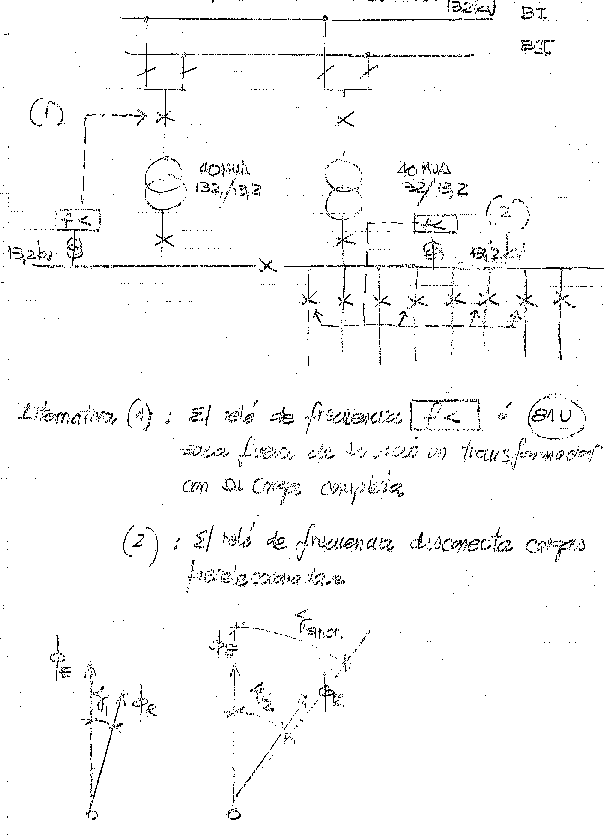 132kV BI
BII
(1)
40MVA
132/13,2
40MVA
132/13,2
f<
f<
(2)
13,2kV
13,2kV
Alternativa (1) : El relé de frecuencia f< ó 81U
saca fuera de un transformador
con su carga completa
(2) : El relé de frecuencia desconecta cargas
ϕE
ϕR
ϕE
ϕR